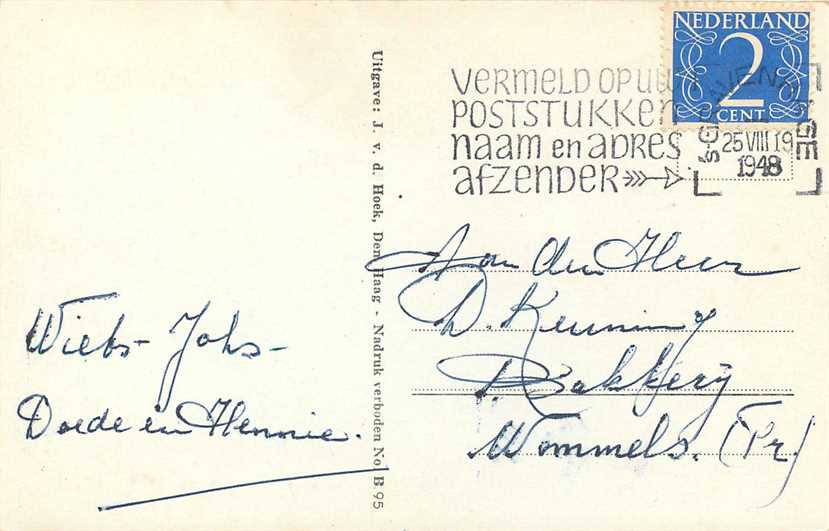 NEDERLAND
2
CENT
VERMELD OP UW
POSTSTUKKEN
naam en adres
afzender
's-GRAVENHAGE
25 VIII 19
1948
Uitgave: J. v. d. Hoek, Den Haag - Nadruk verboden No B 95
Aan den Heer
D. Keuning
Bakkerij
Wommels. (Fr.)
Wiebs - Johs -
Doede en Hennie.